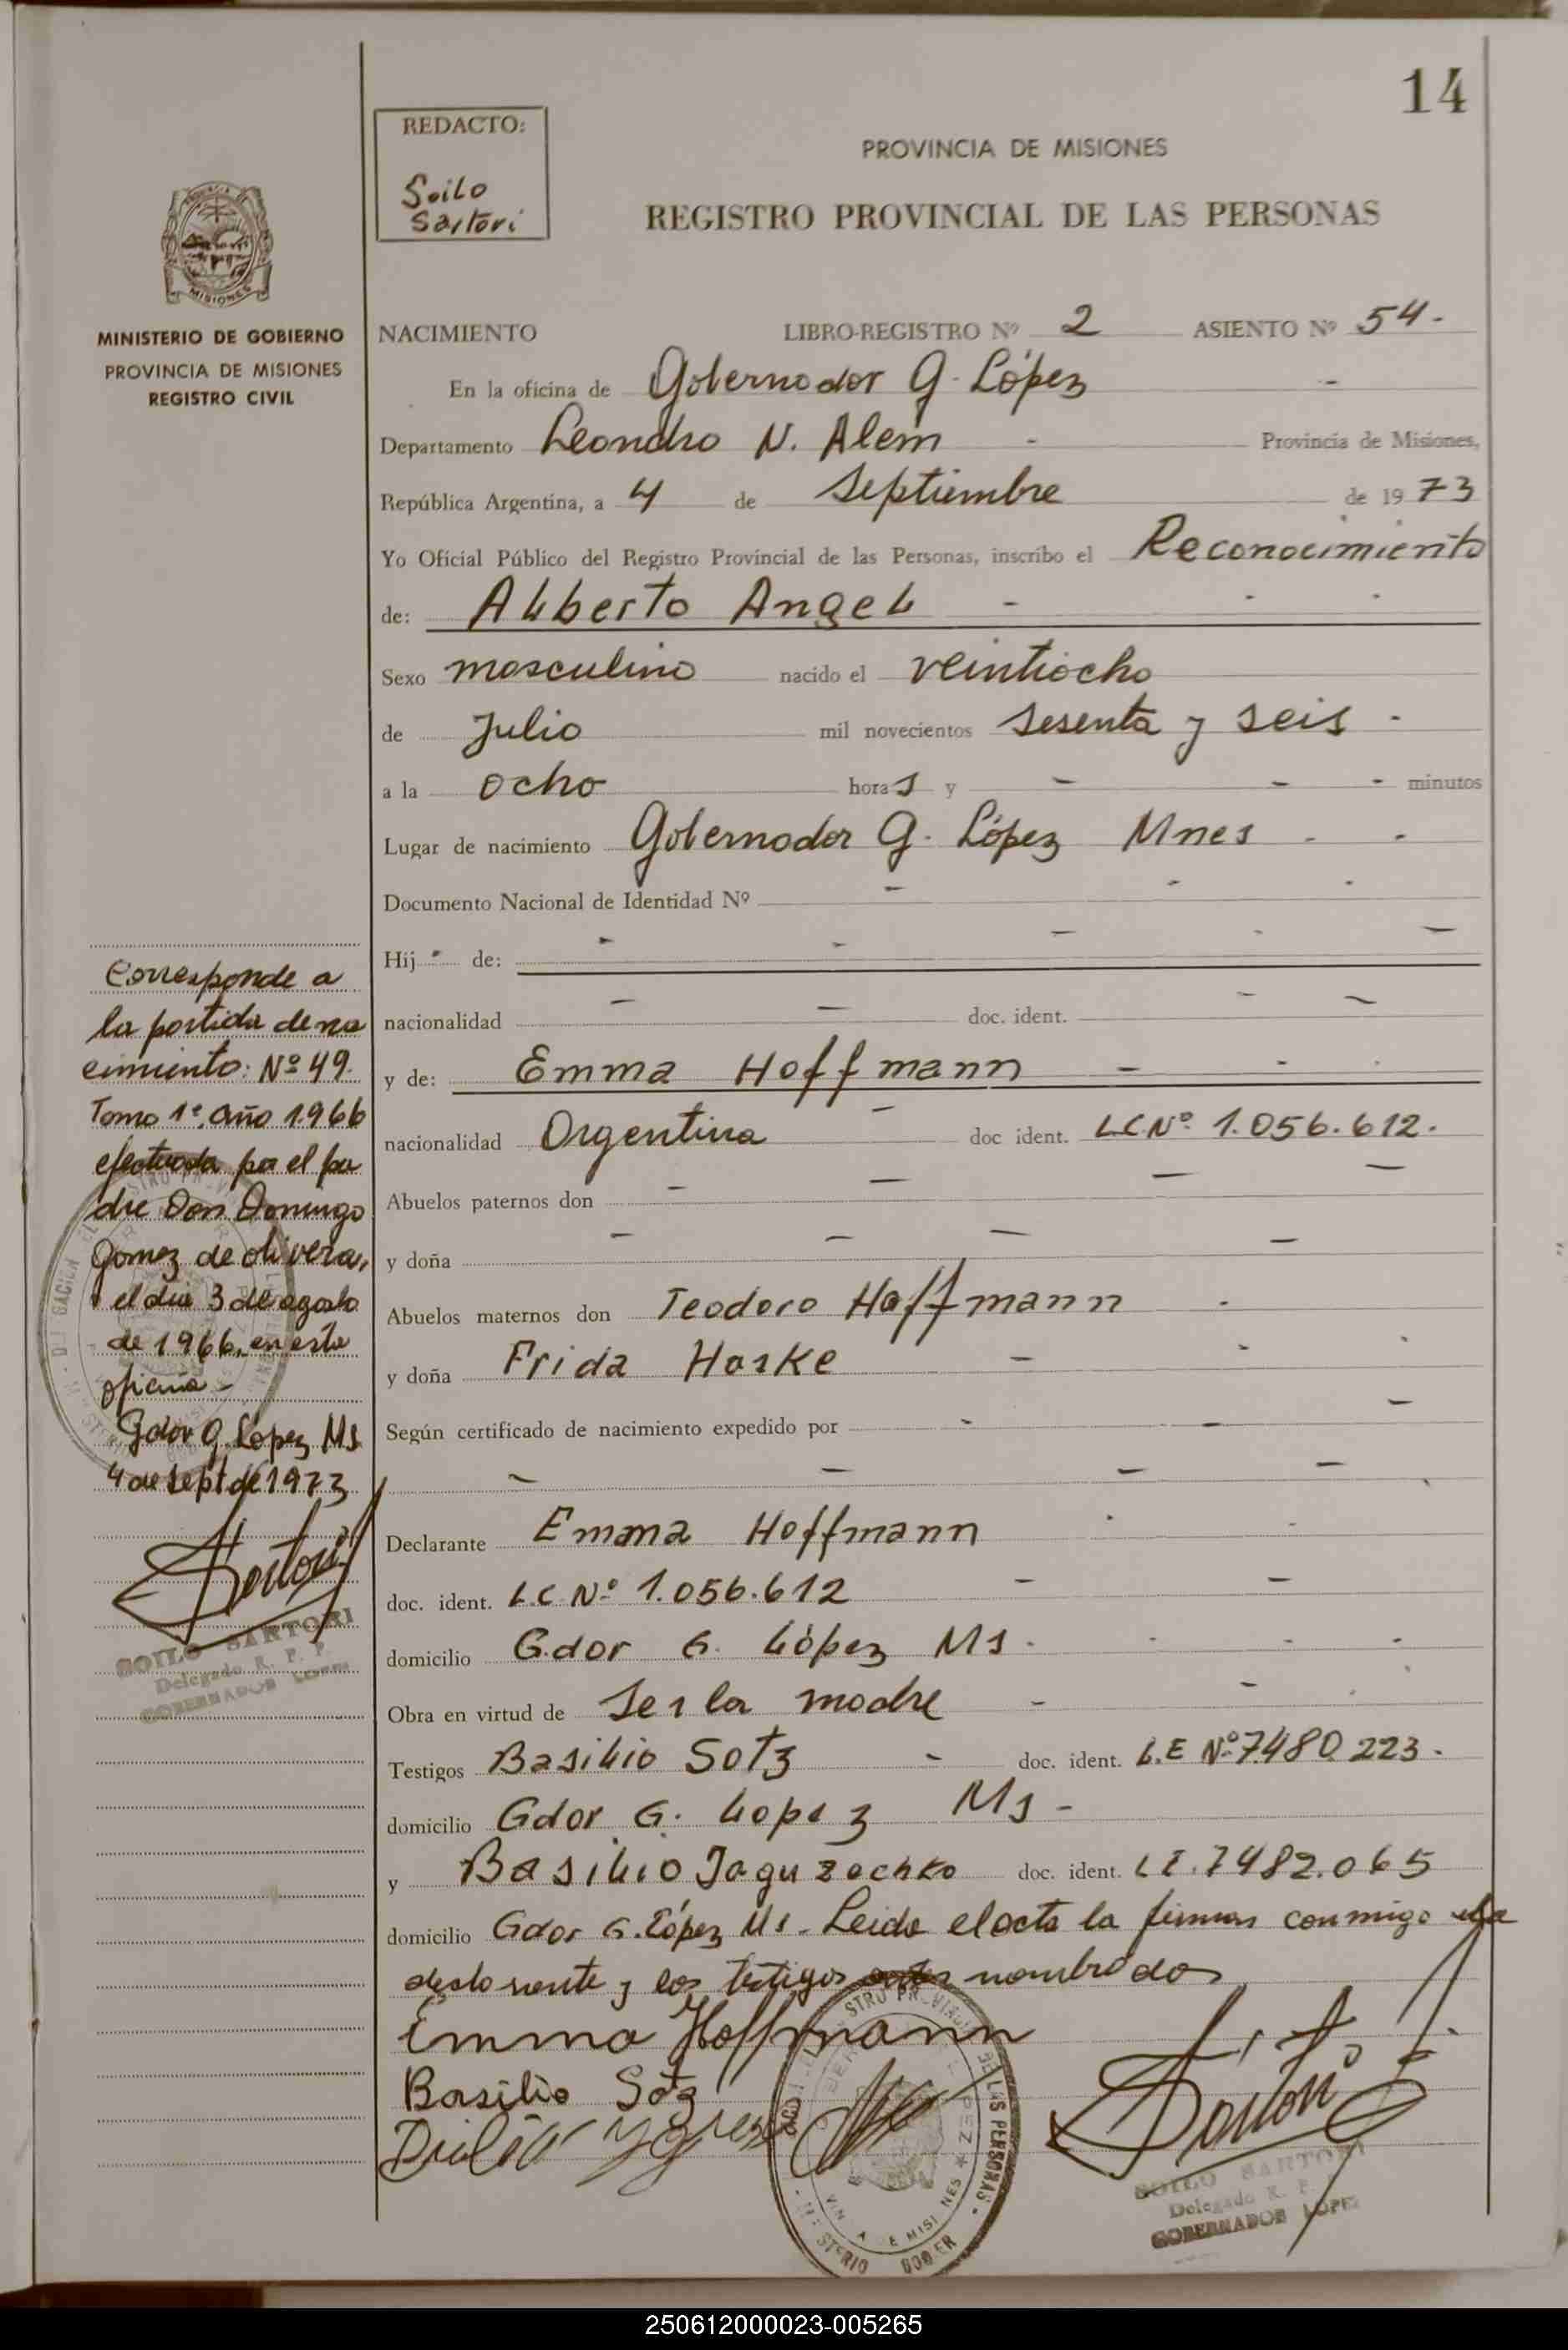 14
REDACTO:
Soilo
Sartori
PROVINCIA DE MISIONES
REGISTRO PROVINCIAL DE LAS PERSONAS
MISIONES
MINISTERIO DE GOBIERNO
PROVINCIA DE MISIONES
REGISTRO CIVIL
NACIMIENTO LIBRO-REGISTRO Nº 2 ASIENTO Nº 54.-
En la oficina de Gobernador G. López -
Departamento Leandro N. Alem - Provincia de Misiones,
República Argentina, a 4 de Septiembre de 1973
Yo Oficial Público del Registro Provincial de las Personas, inscribo el Reconocimiento
de: Alberto Angel - - -
Sexo masculino nacido el veintiocho
de Julio mil novecientos sesenta y seis -
a la ocho horas y - - - minutos
Lugar de nacimiento Gobernador G. López Mnes - -
Documento Nacional de Identidad Nº - - -
Hij - de: - - - - -
nacionalidad - - doc. ident. - -
y de: Emma Hoffmann - -
nacionalidad Argentina - doc ident. L.C Nº 1.056.612.
Abuelos paternos don - - - -
y doña - - - -
Abuelos maternos don Teodoro Hoffmann -
y doña Frida Haske - - -
Según certificado de nacimiento expedido por - - -
- - - -
Declarante Emma Hoffmann - -
doc. ident. L.C Nº 1.056.612 - -
domicilio G.dor G. López Ms. - - -
Obra en virtud de ser la madre - -
Testigos Basilio Sotz - doc. ident. L.E Nº 7.480.223.
domicilio Gdor G. Lopez Ms -
y Basilio Jaguzechko doc. ident. L E. 7482.065
domicilio Gdor G. López Ms. Leida el acta la firman conmigo la
declarante y los testigos antes nombrados
Emma Hoffmann
Basilio Sotz
SOILO SARTORI
Delegado R. P. P.
GOBERNADOR LOPEZ
Corresponde a
la partida de na
cimiento: Nº 49.
Tomo 1º. Año 1.966
efectuada por el pa
dre Don Domingo
Gomez de olivera,
el dia 3 de agosto
de 1966, en esta
oficina -
Gdor G. Lopez Ms
4 de sept de 1973
Sartori
SOILO SARTORI
Delegado R. P. P.
GOBERNADOR LOPEZ
250612000023-005265